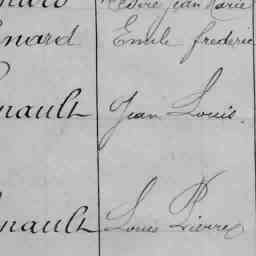 Jean Marie
nard Emile frederic
nault Jean Louis.
nault Louis Pierre